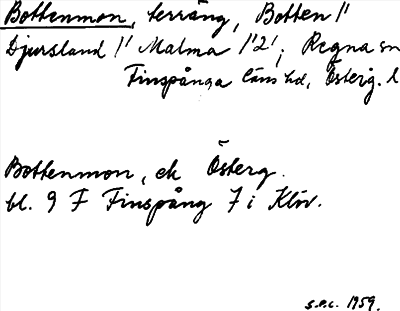 Bottenmon, terräng, Botten 1/1
Djursland 1/1 Malma 1/2 1, Regna sn
Finspånga läns hd, Österg. l
Bottenmon, ek Österg.
bl. 9 F Finspång 7 i Klöv.
s.o.c. 1959.